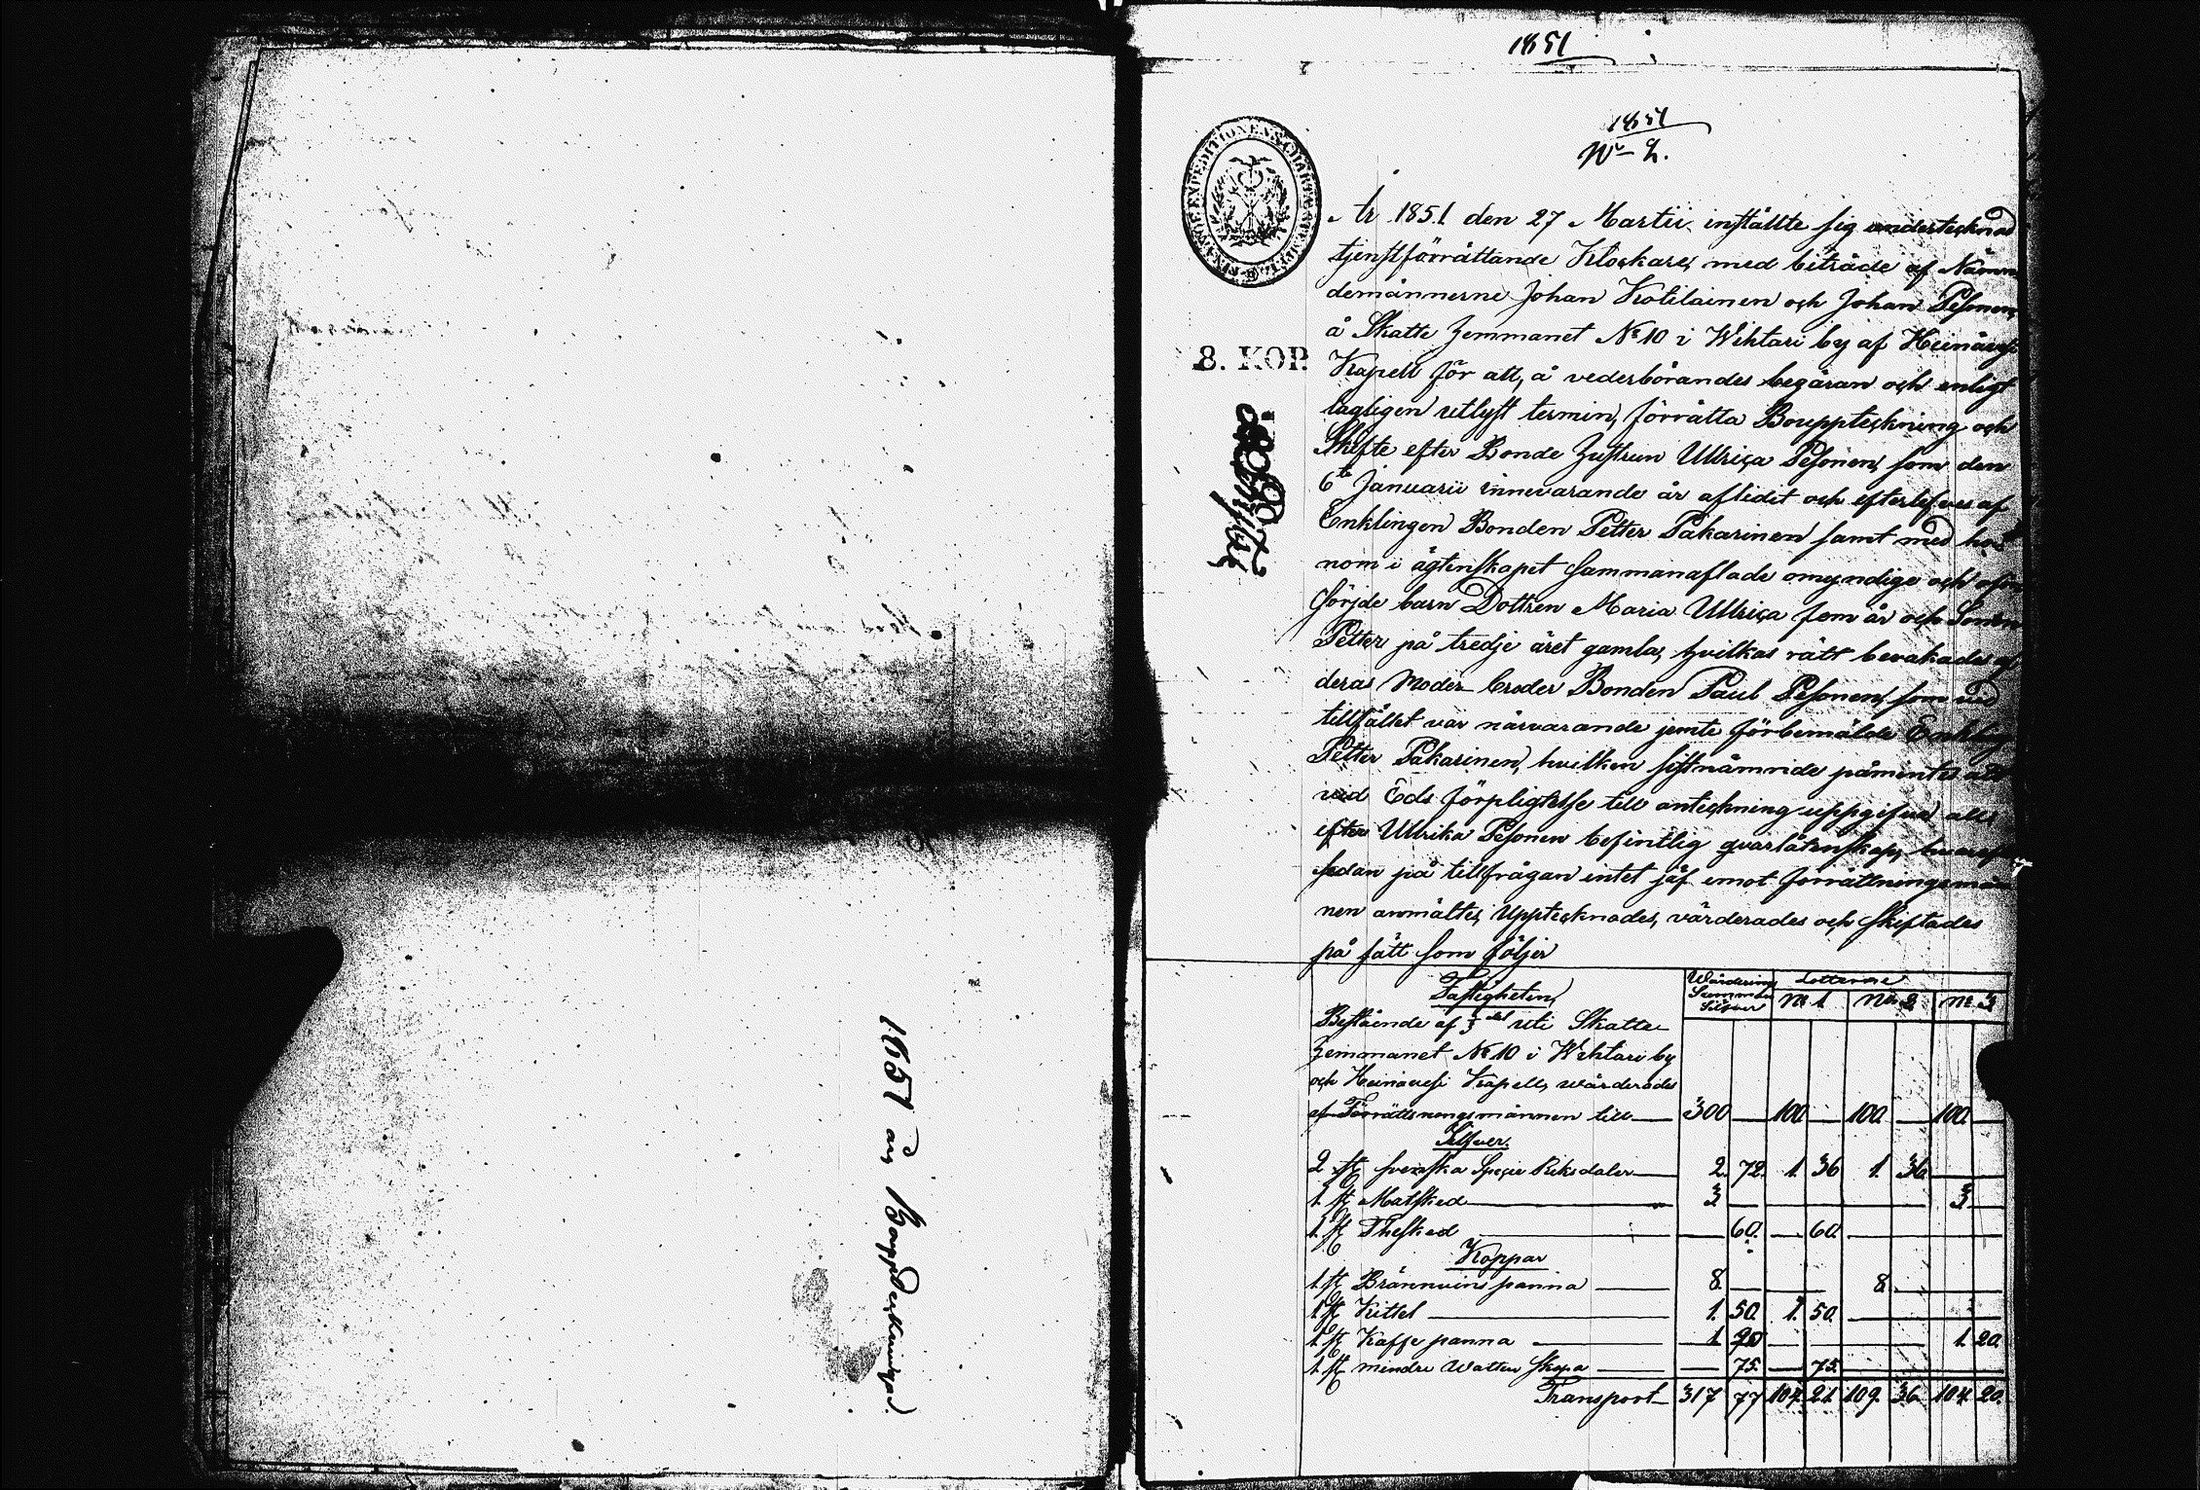 1851 års Bouppteckningar.
1851
1851
No 2.
FINANCE EXPEDITIONENS CHARTÆ
8. KOP.
År 1851 den 27 Martii instälte sig undertecknad
tjenstförrättande Klockare, med biträde af Nämn
demännerne Johan Kotilainen och Johan Pesonen,
å Skatte Hemmanet No 10 i Wihtari by af Heinävesi
Kapell för att, å vederbörandes begäran och enligt
lagligen utlyst termin, förrätta Bouppteckning och
Skifte efter Bonde Hustrun Ullrica Pesonen, som den
6te Januarii innevarande år aflidit och efterlefves af
Enklingen Bonden Petter Pakarinen samt med ho
nom i ägtenskapet sammanaflade omyndige och oför
sörjde barn Dottren Maria Ullrica fem år och Sonen
Petter på tredje året gamla, hvilkas rätt bevakades af
deras Moder broder Bonden Paul Pesonen, som vid
tillfället var närvarande jemte förbemälde Enkling
Petter Pakarinen, hvilken sistnämnde påmintes att
vid Eds förpligtelse till anteckning uppgifva allt
efter Ullrika Pesonen befintlig qvarlåtenskap, hvarefter
sedan på tillfrågan intet jäf emot förrättningsmän
nen anmältes, Upptecknades, värderades och skiftades
på sätt som följer
Wärderings Summa Silfver Lotterne
No 1. No 2. No 3
Fastigheten,
Bestående af 1/3 del uti Skatte
Hemmanet No 10 i Wihtari by
och Heinävesi Kapell, wärderades
af Förrättningsmännen till 300 — 100 — 100 — 100 —
Silfver.
2 st Svenska Specie Riksdaler 2. 72. 1. 36 1. 36
1 st Matsked 3 — 3 —
1 st Thesked — 60. — 60.
Koppar
1 st Brännvins panna 8. — 8 —
1 st Kittel 1. 50. 1. 50.
1 st Kaffe panna 1 20 1. 20.
1 st mindre Watten Skopa — 75. — 75.
Transport 317 77 104. 21. 109. 36 104. 20.